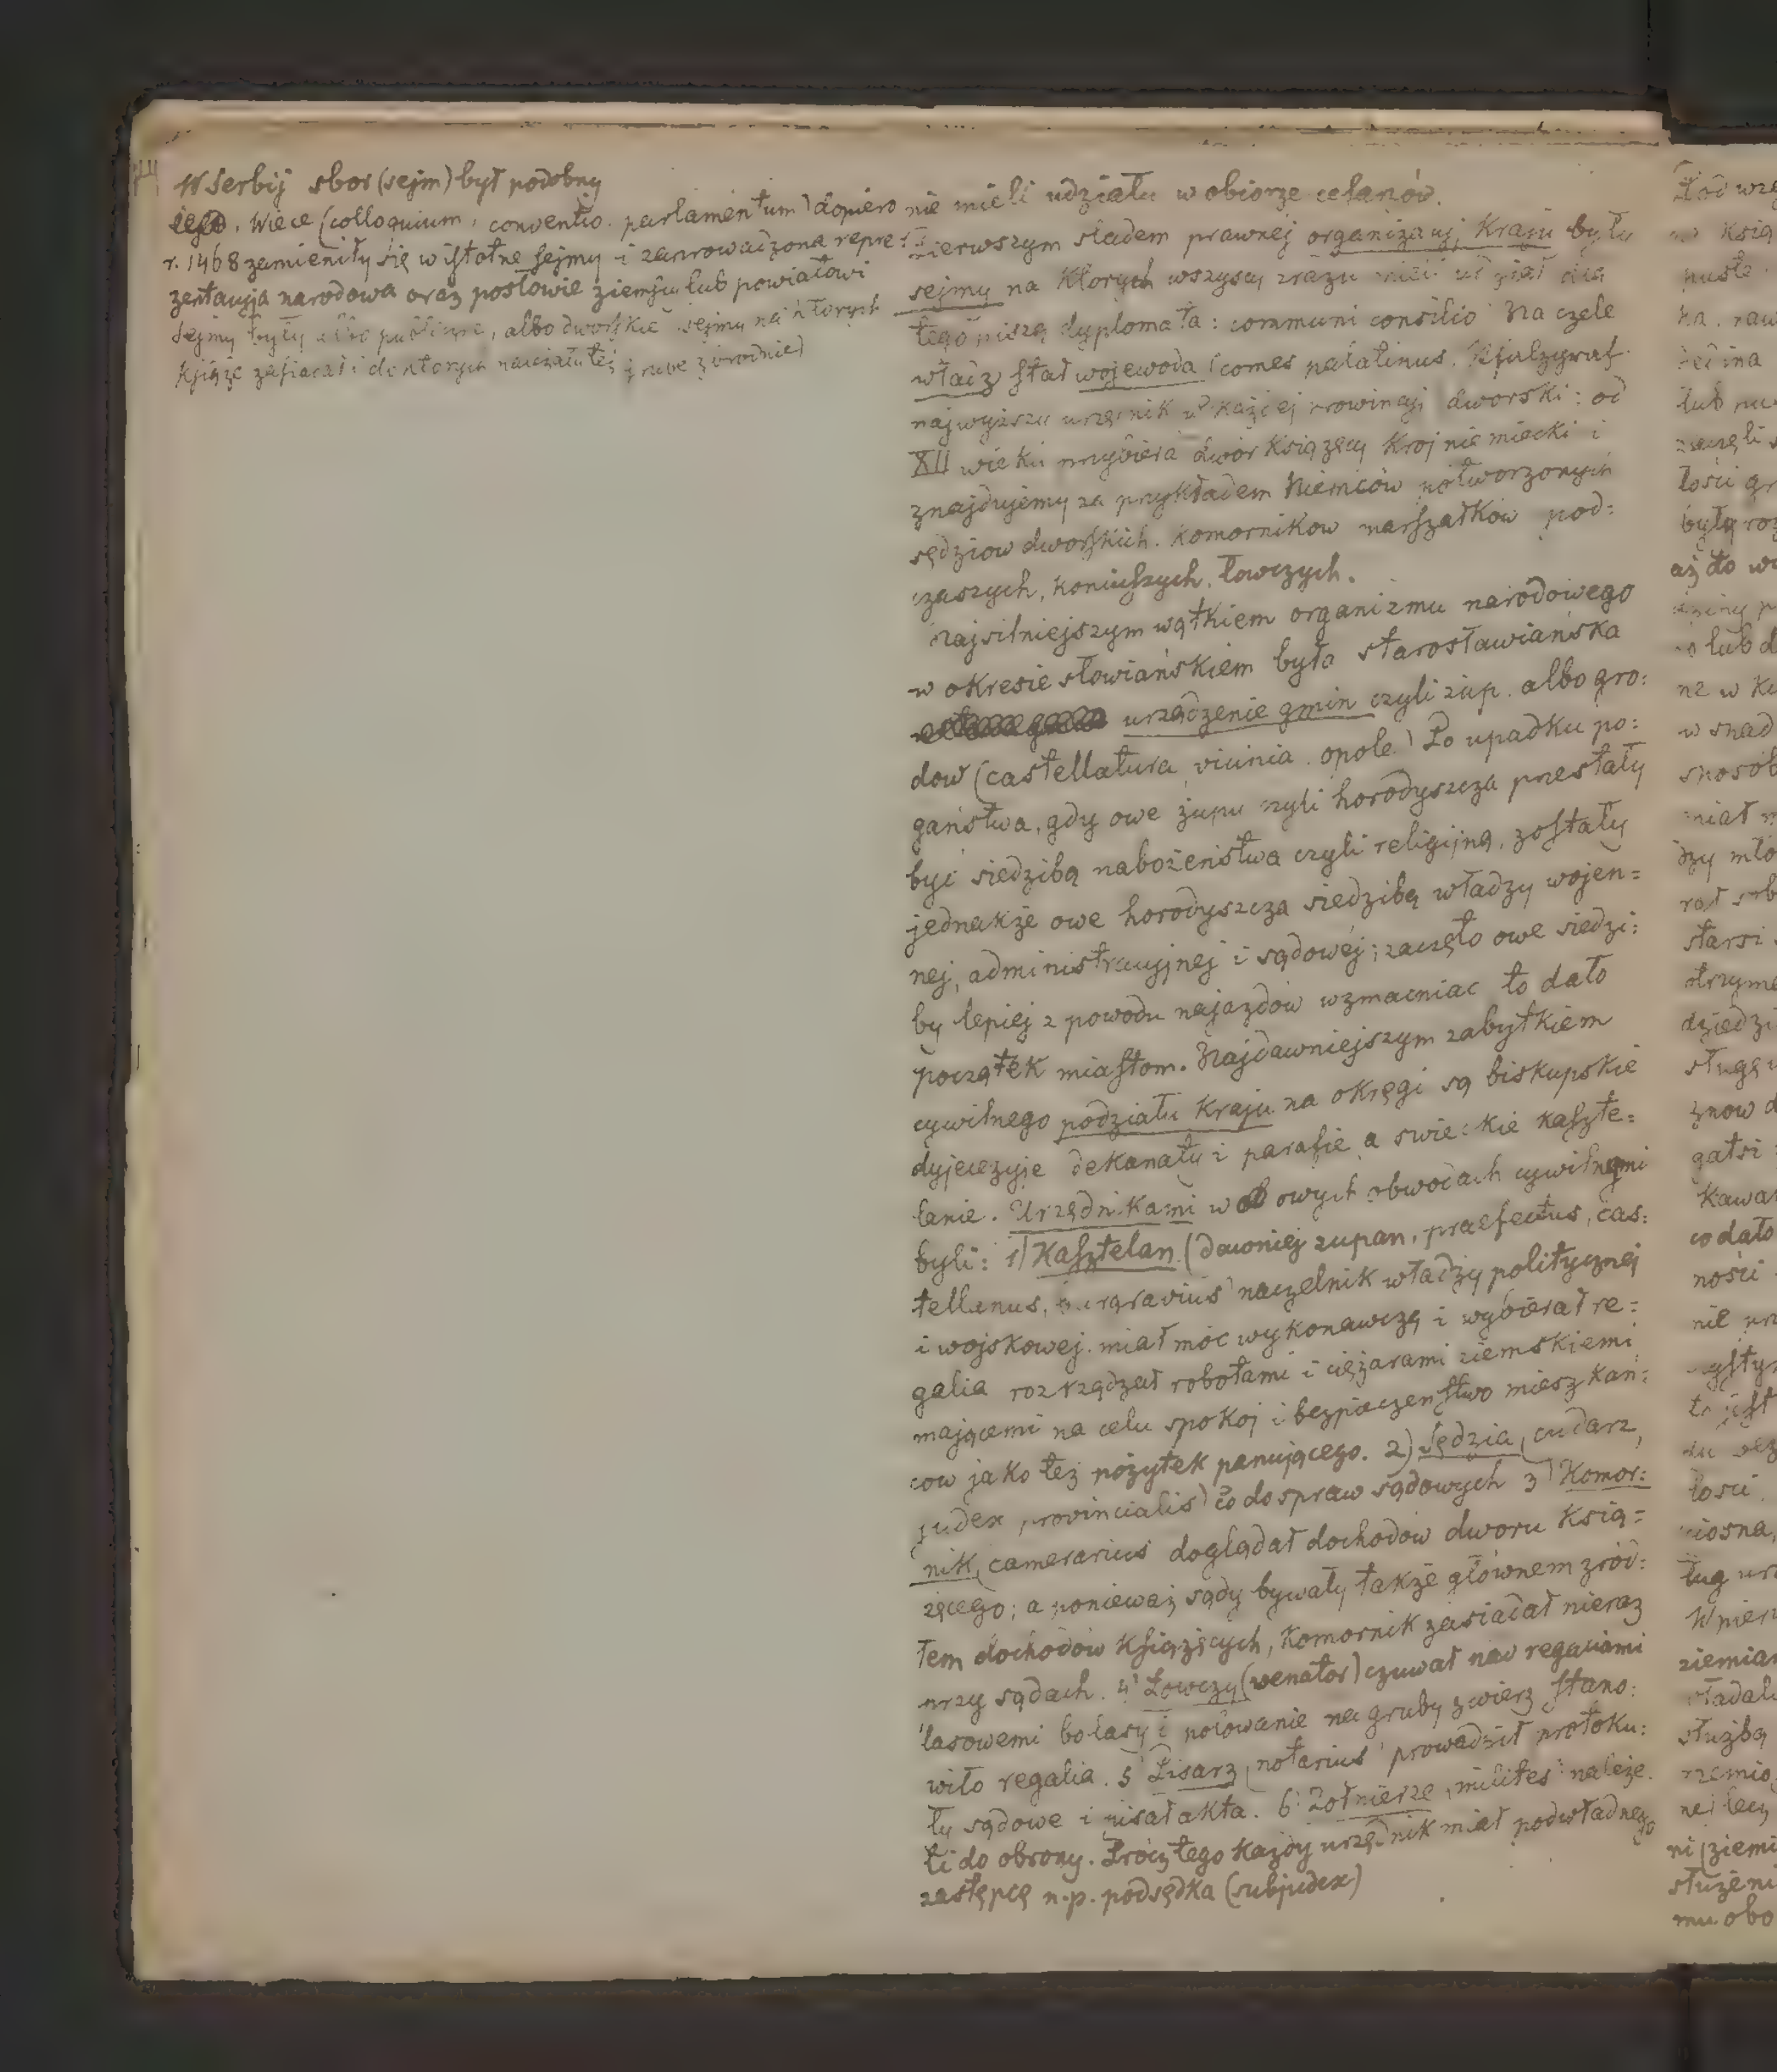 W Serbij sbor (sejm) był podobny
. Wiece (colloquium, conventio, parlamentum) dopiero
r. 1468 zamieniły się w istotne sejmy i zaprowadzona repre=
zentacyja narodowa oraz posłowie ziemscy lub powiatowi
Sejmy były albo publiczne, albo dworskie (sejmy na których
książe zasiadał i do których należały też grube zbrodnie)
nie mieli udziału w obiorze
Pierwszym śladem prawnej organizacyj Kraju były
sejmy na których wszyscy zrazu mieli udział dla
tego piszą dyplomata: communi consilio Na czele
władz stał wojewoda (comes palatinus, Pfalzgraf
najwyższy urzędnik w każdej prowincyi dworski: od
XII wieku przybiera dwór Książęcy Krój niemiecki i
znajdujemy za przykładem Niemców potworzonych
sędziow dworskich, komornikow marszałkow pod=
czaszych, koniuszych, łowczych.
Najsilniejszym wątkiem organizmu narodowego
w okresie słowiańskiem była starosławiańska
urządzenie gmin czyli żup, albo gro=
dow (castellatura, vicinia, opole) Po upadku po=
gaństwa, gdy owe żupy czyli horodyszcza przestały
być siedzibą nabożeństwa czyli religijną, zostały
jednakże owe horodyszcza siedzibą władzy wojen=
nej, administracyjnej i sądowéj; zaczęto owe siedzi=
by lepiej z powodu najazdów wzmacniac to dało
początek miastom. Najdawniejszym zabytkiem
cywilnego podziału Kraju na okręgi są biskupskie
dyjecezyje dekanaty i parafie a swieckie kaszte=
lanie. Urzędnikami w owych obwodach cywilnymi
byli: 1) Kasztelan (dawniej zupan, praefectus, cas=
tellanus, burgravius) naczelnik władzy politycznej
i wojskowej, miał móc wykonawczą i wybierał re=
galia rozrządzał robotami i ciężarami ziemskiemi
mającemi na celu spokoj i bezpieczenstwo mieszkan=
cow jako też pożytek panującego. 2) Sędzia (cudarz,
judex provincialis) co do spraw sądowych 3) Komor=
nik, camerarius doglądał dochodów dworu Ksią=
zęcego; a ponieważ sądy bywały także głównem zród=
łem dochodów Książęcych, Komornik zasiadał nieraz
przy sądach. 4) Łowczy (venator) czuwał nad regaliami
lasowemi bo lasy i polowanie na gruby zwierz stano=
wiło regalia. 5) Pisarz (notarius) prowadził protoku=
ły sądowe i pisał akta. 6) Żołnierze (milites) należe=
li do obrony. Prócz tego każdy urzędnik miał podwładnego
zastępcę n.p. podsędka (subjudex)